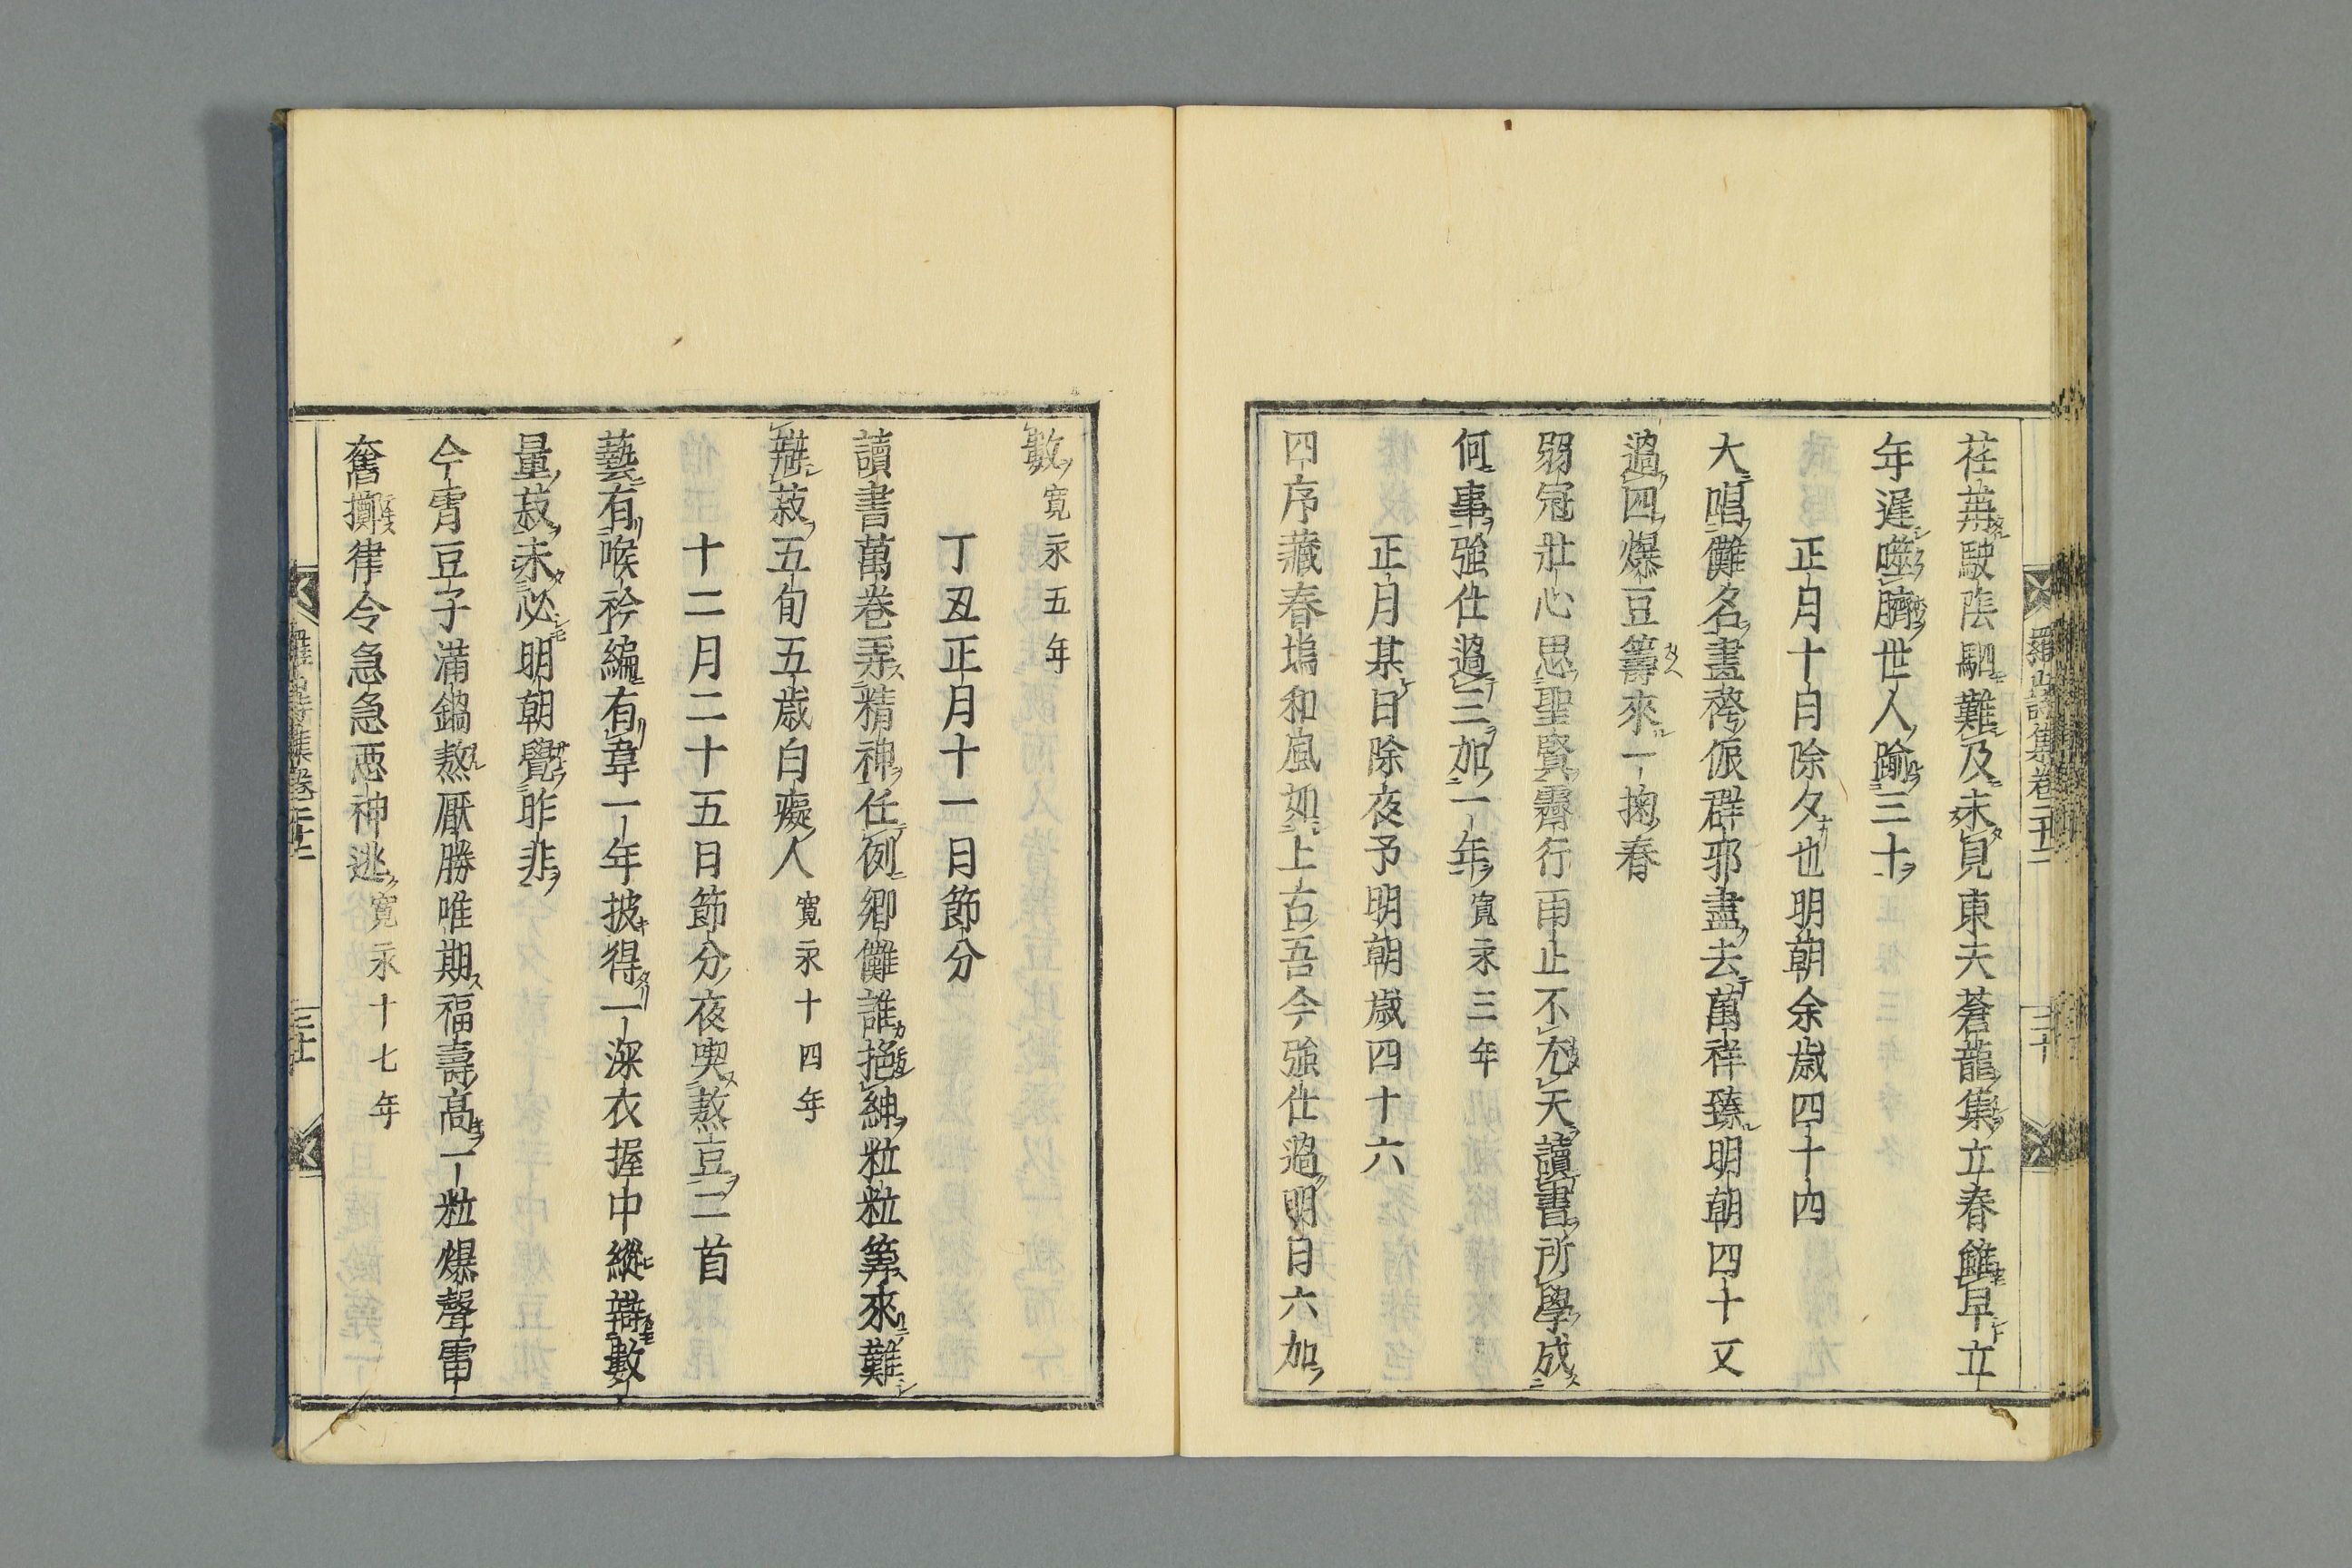 荏苒駛陰駟難及未見東夫蒼龍集立春雖早立
年遲噬臍世人踰三十
正月十日除夕也明朝余歲四十四
大唱儺名畫袴侲群邪盡去萬祥臻明朝四十又
過四爆豆籌來一掬春
弱冠壯心思聖賢霽行雨止不尤天讀書所學成
何事強仕過三加一年寛永三年
正月某日除夜予明朝歲四十六
四序藏春塢和風如上古吾今強仕過明日六加
羅山詩集卷二十二
三十
數寛永五年
丁丑正月十一日節分
讀書萬卷弄精神任例鄉儺誰挹紳粒粒筭來難
辨菽五旬五歲白癡人寛永十四年
十二月二十五日節分夜喫熬豆二首
藝有喉衿編有韋一年披得一深衣握中縱辨數
量菽未必明朝覺昨非
今宵豆子滿鍋熬厭勝唯期福壽高一粒爆聲雷
奮擲律令急急惡神逃寛永十七年